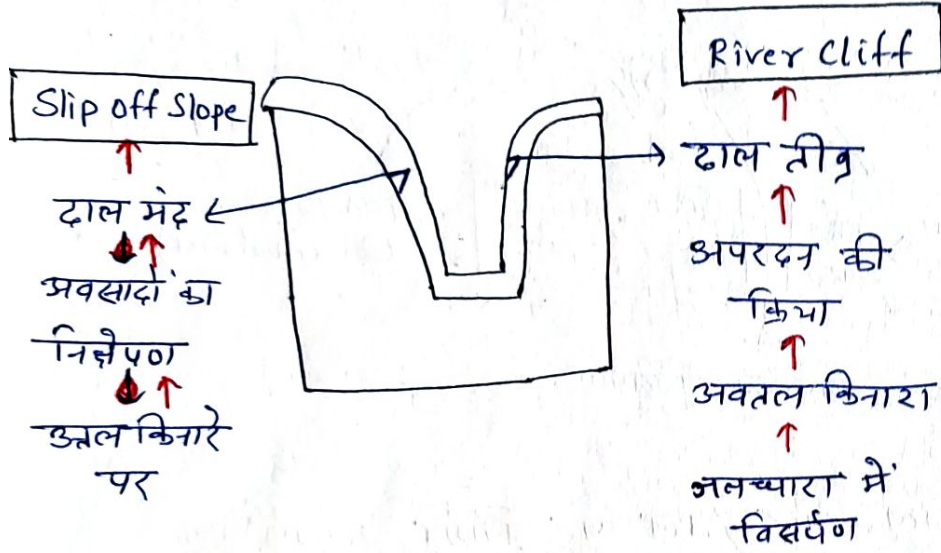 Slip off Slope
ढाल मंद
अवसादों का
निक्षेपण
उत्तल किनारे
पर
River Cliff
ढाल तीव्र
अपरदन की
क्रिया
अवतल किनारा
जलधारा में
विसर्पण